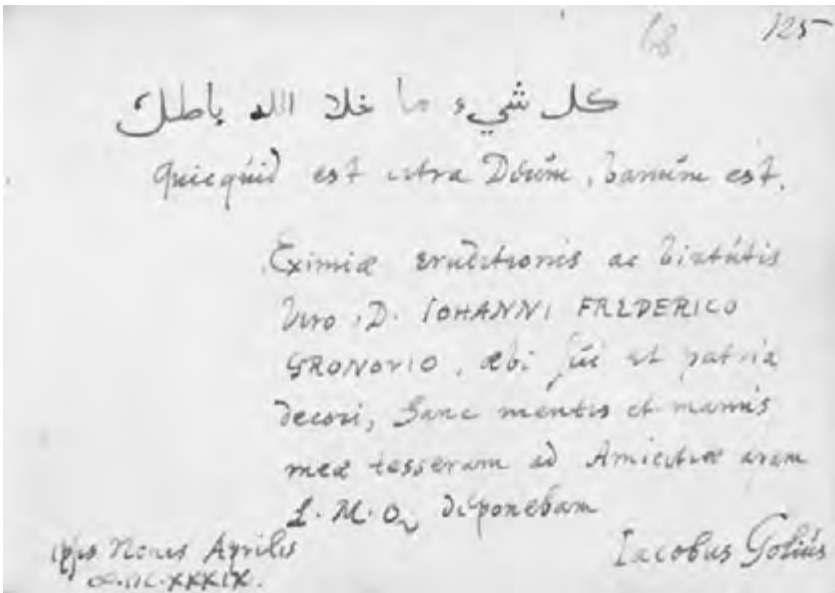 68 125
كل شيء ما خلا الله باطل
Quicquid est citra Deum, vanum est.
Eximiæ eruditionis ac virtutis
viro. D. IOHANNI FREDERICO
GRONOVIO, ævi sui et patriæ
decori, hanc mentis et manus
meæ tesseram ad Amicitiæ aram
L. M. Q. deponebam
ipsis Nonis Aprilis
Iacobus Golius
XXXIX.